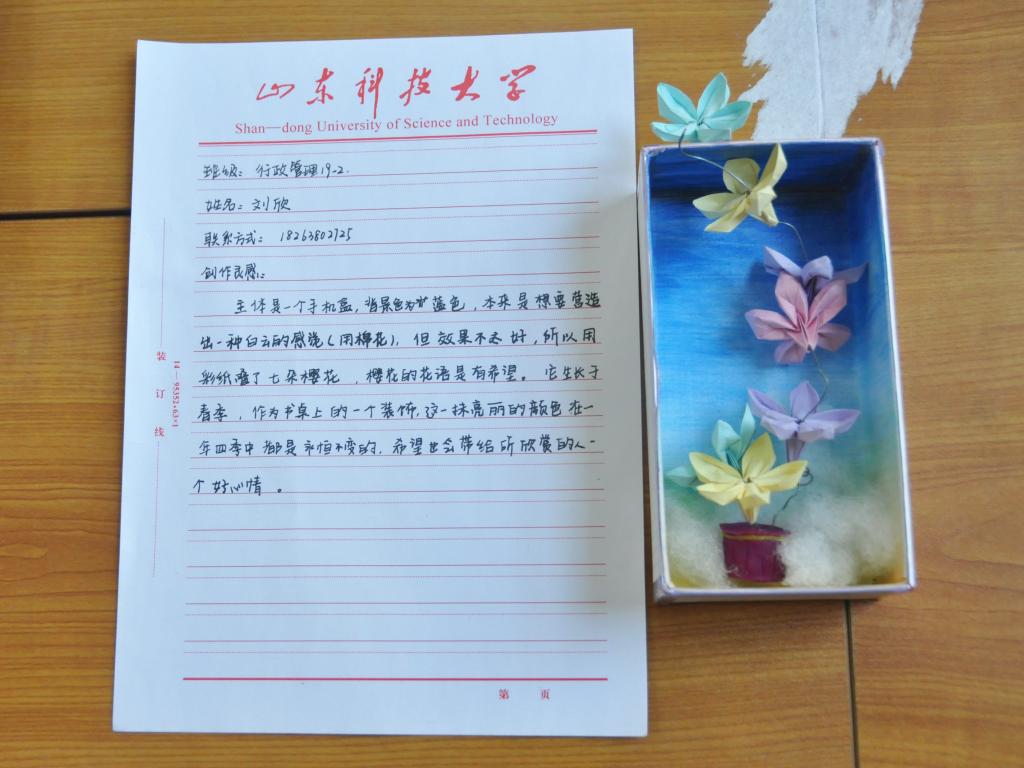 山东科技大学
Shan—dong University of Science and Technology
班级：行政管理19-2.
姓名：刘欣
联系方式：18263802725
创作灵感：
主体是一个手机盒，背景色为蓝色，本来是想要营造
出一种白云的感觉（用棉花），但效果不太好，所以用
彩纸叠了七朵樱花，樱花的花语是有希望。它生长于
春季，作为书桌上的一个装饰，这一抹亮丽的颜色在一
年四季中都是永恒不变的，希望也会带给所欣赏的人一
个好心情。
装订线
14—95352·63×1
第 页